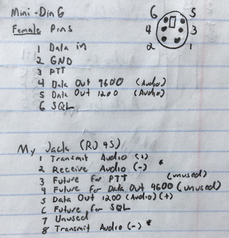 Mini-Din 6
Female Pins
1 Data in
2 GND
3 PTT
4 Data Out 9600 (Audio)
5 Data Out 1200 (Audio)
6 SQL
6 5
4 3
2 1
My Jack (RJ45)
1 Transmit Audio (+)
2 Receive Audio (-) *
3 Future for PTT (unused)
4 Future for Data Out 9600 (unused)
5 Data Out 1200 (Audio) (+)
6 Future for SQL
7 Unused
8 Transmit Audio (-) *